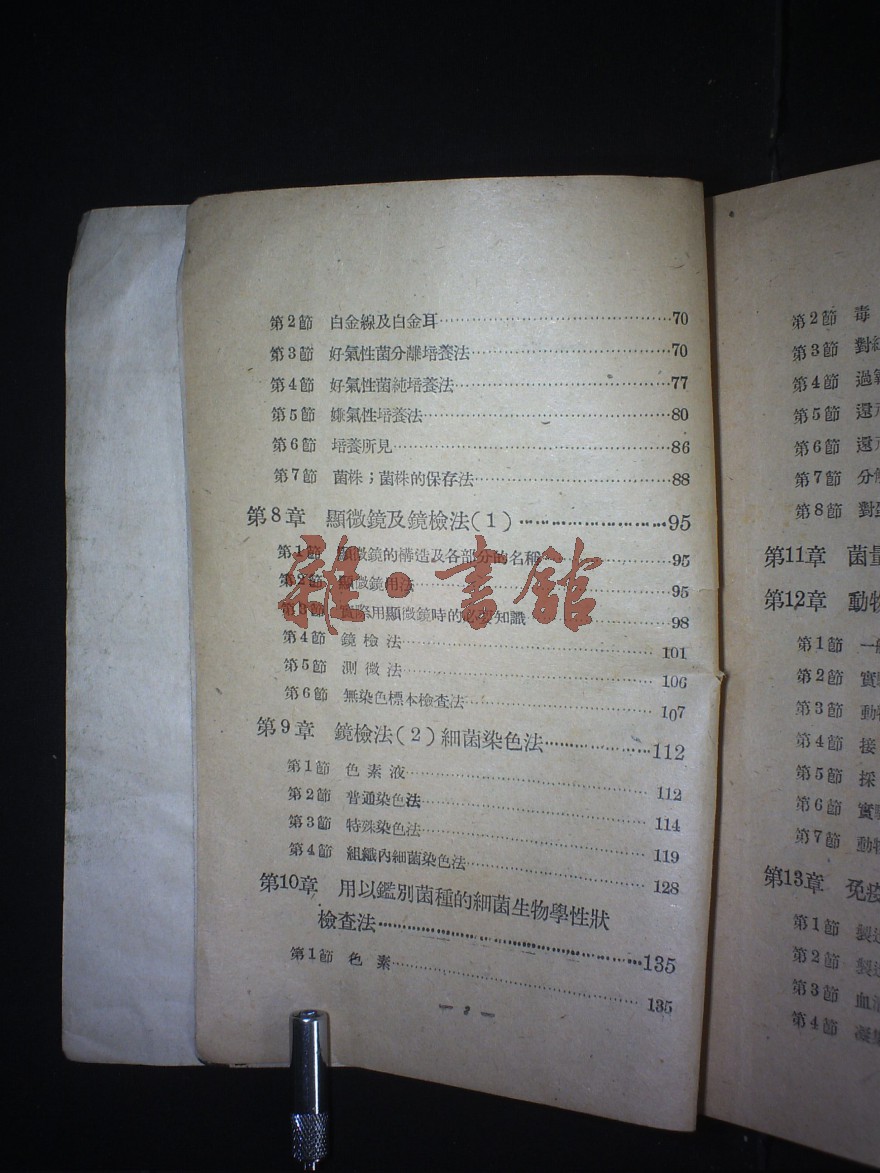 第2節 白金線及白金耳……70
第3節 好氣性菌分離培養法……70
第4節 好氣性菌純培養法……77
第5節 嫌氣性培養法……80
第6節 培養所見……86
第7節 菌株；菌株的保存法……88
第8章 顯微鏡及鏡檢法(1)……95
第1節 顯微鏡的構造及各部分的名稱……95
第2節 顯微鏡用法……95
第3節 實際用顯微鏡時的必要知識……98
第4節 鏡檢法……101
第5節 測微法……106
第6節 無染色標本檢查法……107
第9章 鏡檢法(2)細菌染色法……112
第1節 色素液……112
第2節 普通染色法……114
第3節 特殊染色法……119
第4節 組織內細菌染色法……128
第10章 用以鑑別菌種的細菌生物學性狀
檢查法……135
第1節 色素……135
雜·書館
第2節 毒
第3節 對
第4節 過氧
第5節 還
第6節 還
第7節 分解
第8節 對
第11章 菌量
第12章 動物
第1節 一般
第2節 實
第3節 動物
第4節 接
第5節 採
第6節 實
第7節 動物
第13章 免疫
第1節 製
第2節 製
第3節 血
第4節 凝